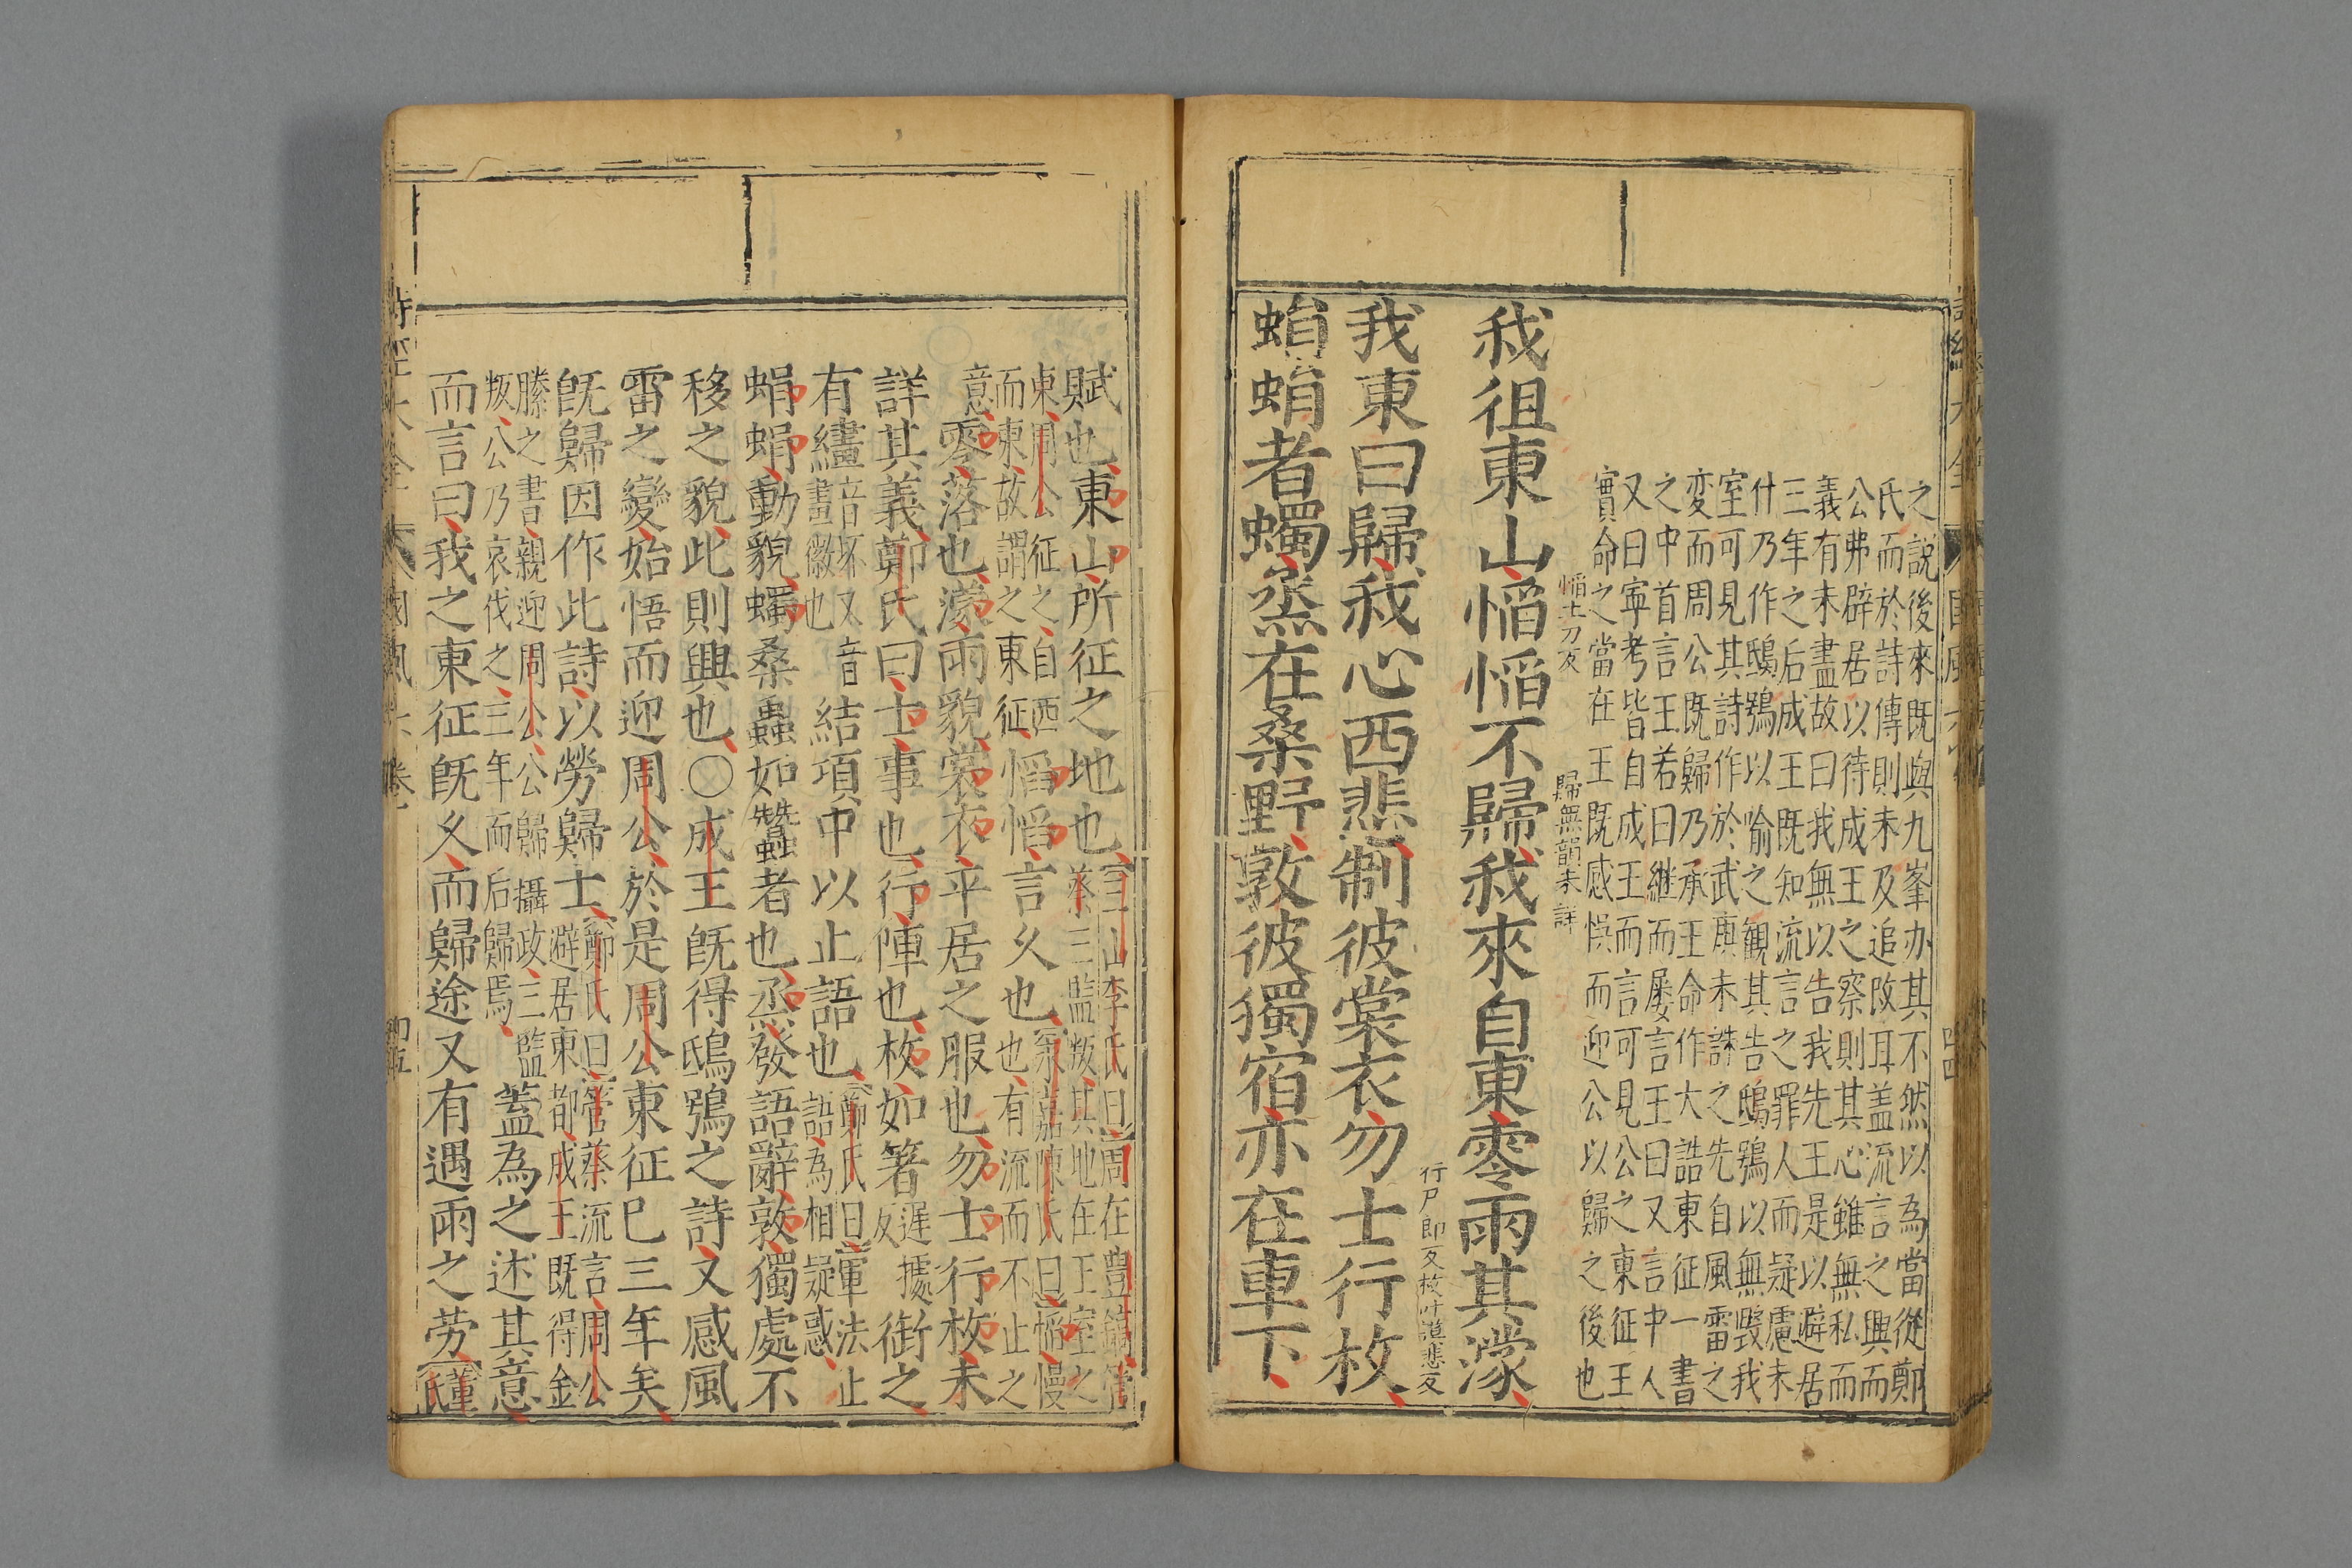 之說後來既與九峯办其不然以為當從鄭
氏而於詩傳則未及追改耳盖流言之興而
公弗辟居以待成王之察則其心雖無私而
義有未盡故曰我無以告我先王是以避居
三年之后成王既知流言之罪人而疑慮未
什乃作鴟鴞以喻之觀其告鴟鴞以無毀我
室可見其詩作於武庚未誅之先自風雷之
变而周公既歸乃承王命作大誥東征一書
之中首言王若曰継而屡言王曰又言中人
又曰寜考皆自成王而言可見公之東征王
實命之當在王既感悞而迎公以歸之後也
我徂東山慆慆不歸我來自東零雨其濛
慆土刀反
歸無韻未詳
我東曰歸我心西悲制彼裳衣勿士行枚
行戸郎反枚叶謨悲反
蜎蜎者蠋烝在桑野敦彼獨宿亦在車下
賦也東山所征之地也
三山李氏曰周在豊鎬管
蔡三監叛其地在王室之
東周公征之自西
而東故謂之東征
慆慆言久也
永嘉陳氏曰慆慢
也有流而不止之
意
零落也濛雨貌裳衣平居之服也勿士行枚未
詳其義鄭氏曰士事也行陣也枚如箸
遅據
反
銜之
有繣
音坏又音
畫徽也
結項中以止語也
鄭氏曰軍法止
語為相疑惑
蜎蜎動貌蠋桑蟲如蠶者也烝發語辭敦獨處不
移之貌此則興也〇成王既得鴟鴞之詩又感風
雷之變始悟而迎周公於是周公東征已三年矣
既歸因作此詩以勞歸士
鄭氏曰管蔡流言周公
避居東都成王既得金
縢之書親迎周公公歸攝政三監
叛公乃哀伐之三年而后歸焉
蓋為之述其意
而言曰我之東征既久而歸途又有遇雨之勞
董
氏